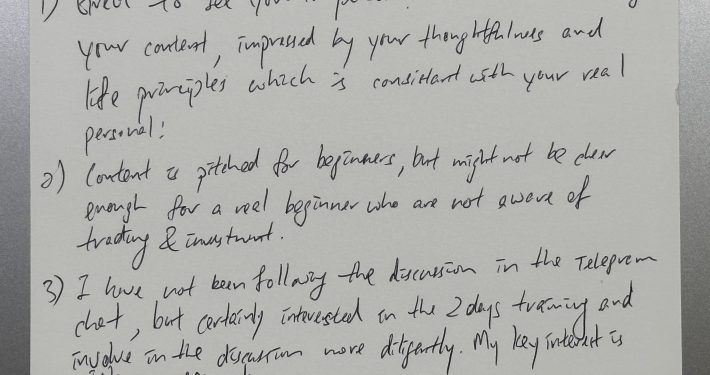 1) Great to see you
your content, impressed by your thoughtfulness and
life principles which is consistant with your real
personal!
2) Content is pitched for beginners, but might not be clear
enough for a real beginner who are not aware of
trading & investment.
3) I have not been following the discussion in the Telegram
chat, but certainly interested in the 2 days training and
involve in the discussion more diligently. My key interest is